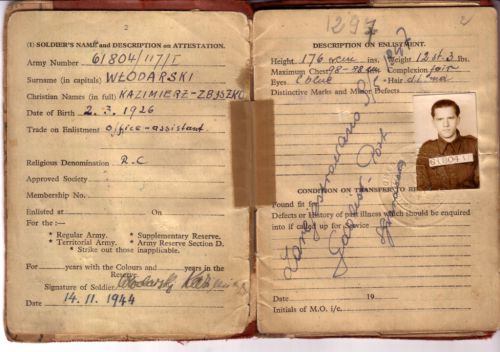 2
(1) SOLDIER'S NAME and DESCRIPTION on ATTESTATION.
Army Number 61804/117/I
Surname (in capitals) WŁODARSKI
Christian Names (in full) KAZIMIERZ-ZBYSZKO
Date of Birth 2.3.1926
Trade on Enlistment office-assistant
Religious Denomination R.C
Approved Society
Membership No.
Enlisted at On
For the :—
* Regular Army. * Supplementary Reserve.
* Territorial Army. * Army Reserve Section D.
* Strike out those inapplicable.
For years with the Colours and years in the
Reserve.
Signature of Soldier
Date 14.11.1944
1297
2
DESCRIPTION ON ENLISTMENT.
Height 176 ins. Weight 12 st. 3 lbs.
Maximum Chest Complexion fair
Eyes blue Hair
Distinctive Marks and Minor Defects
61804
CONDITION ON TRANSFER TO
Found fit for
Defects or History of past illness which should be enquired
into if called up for Service
Date 19
Initials of M.O. i/c